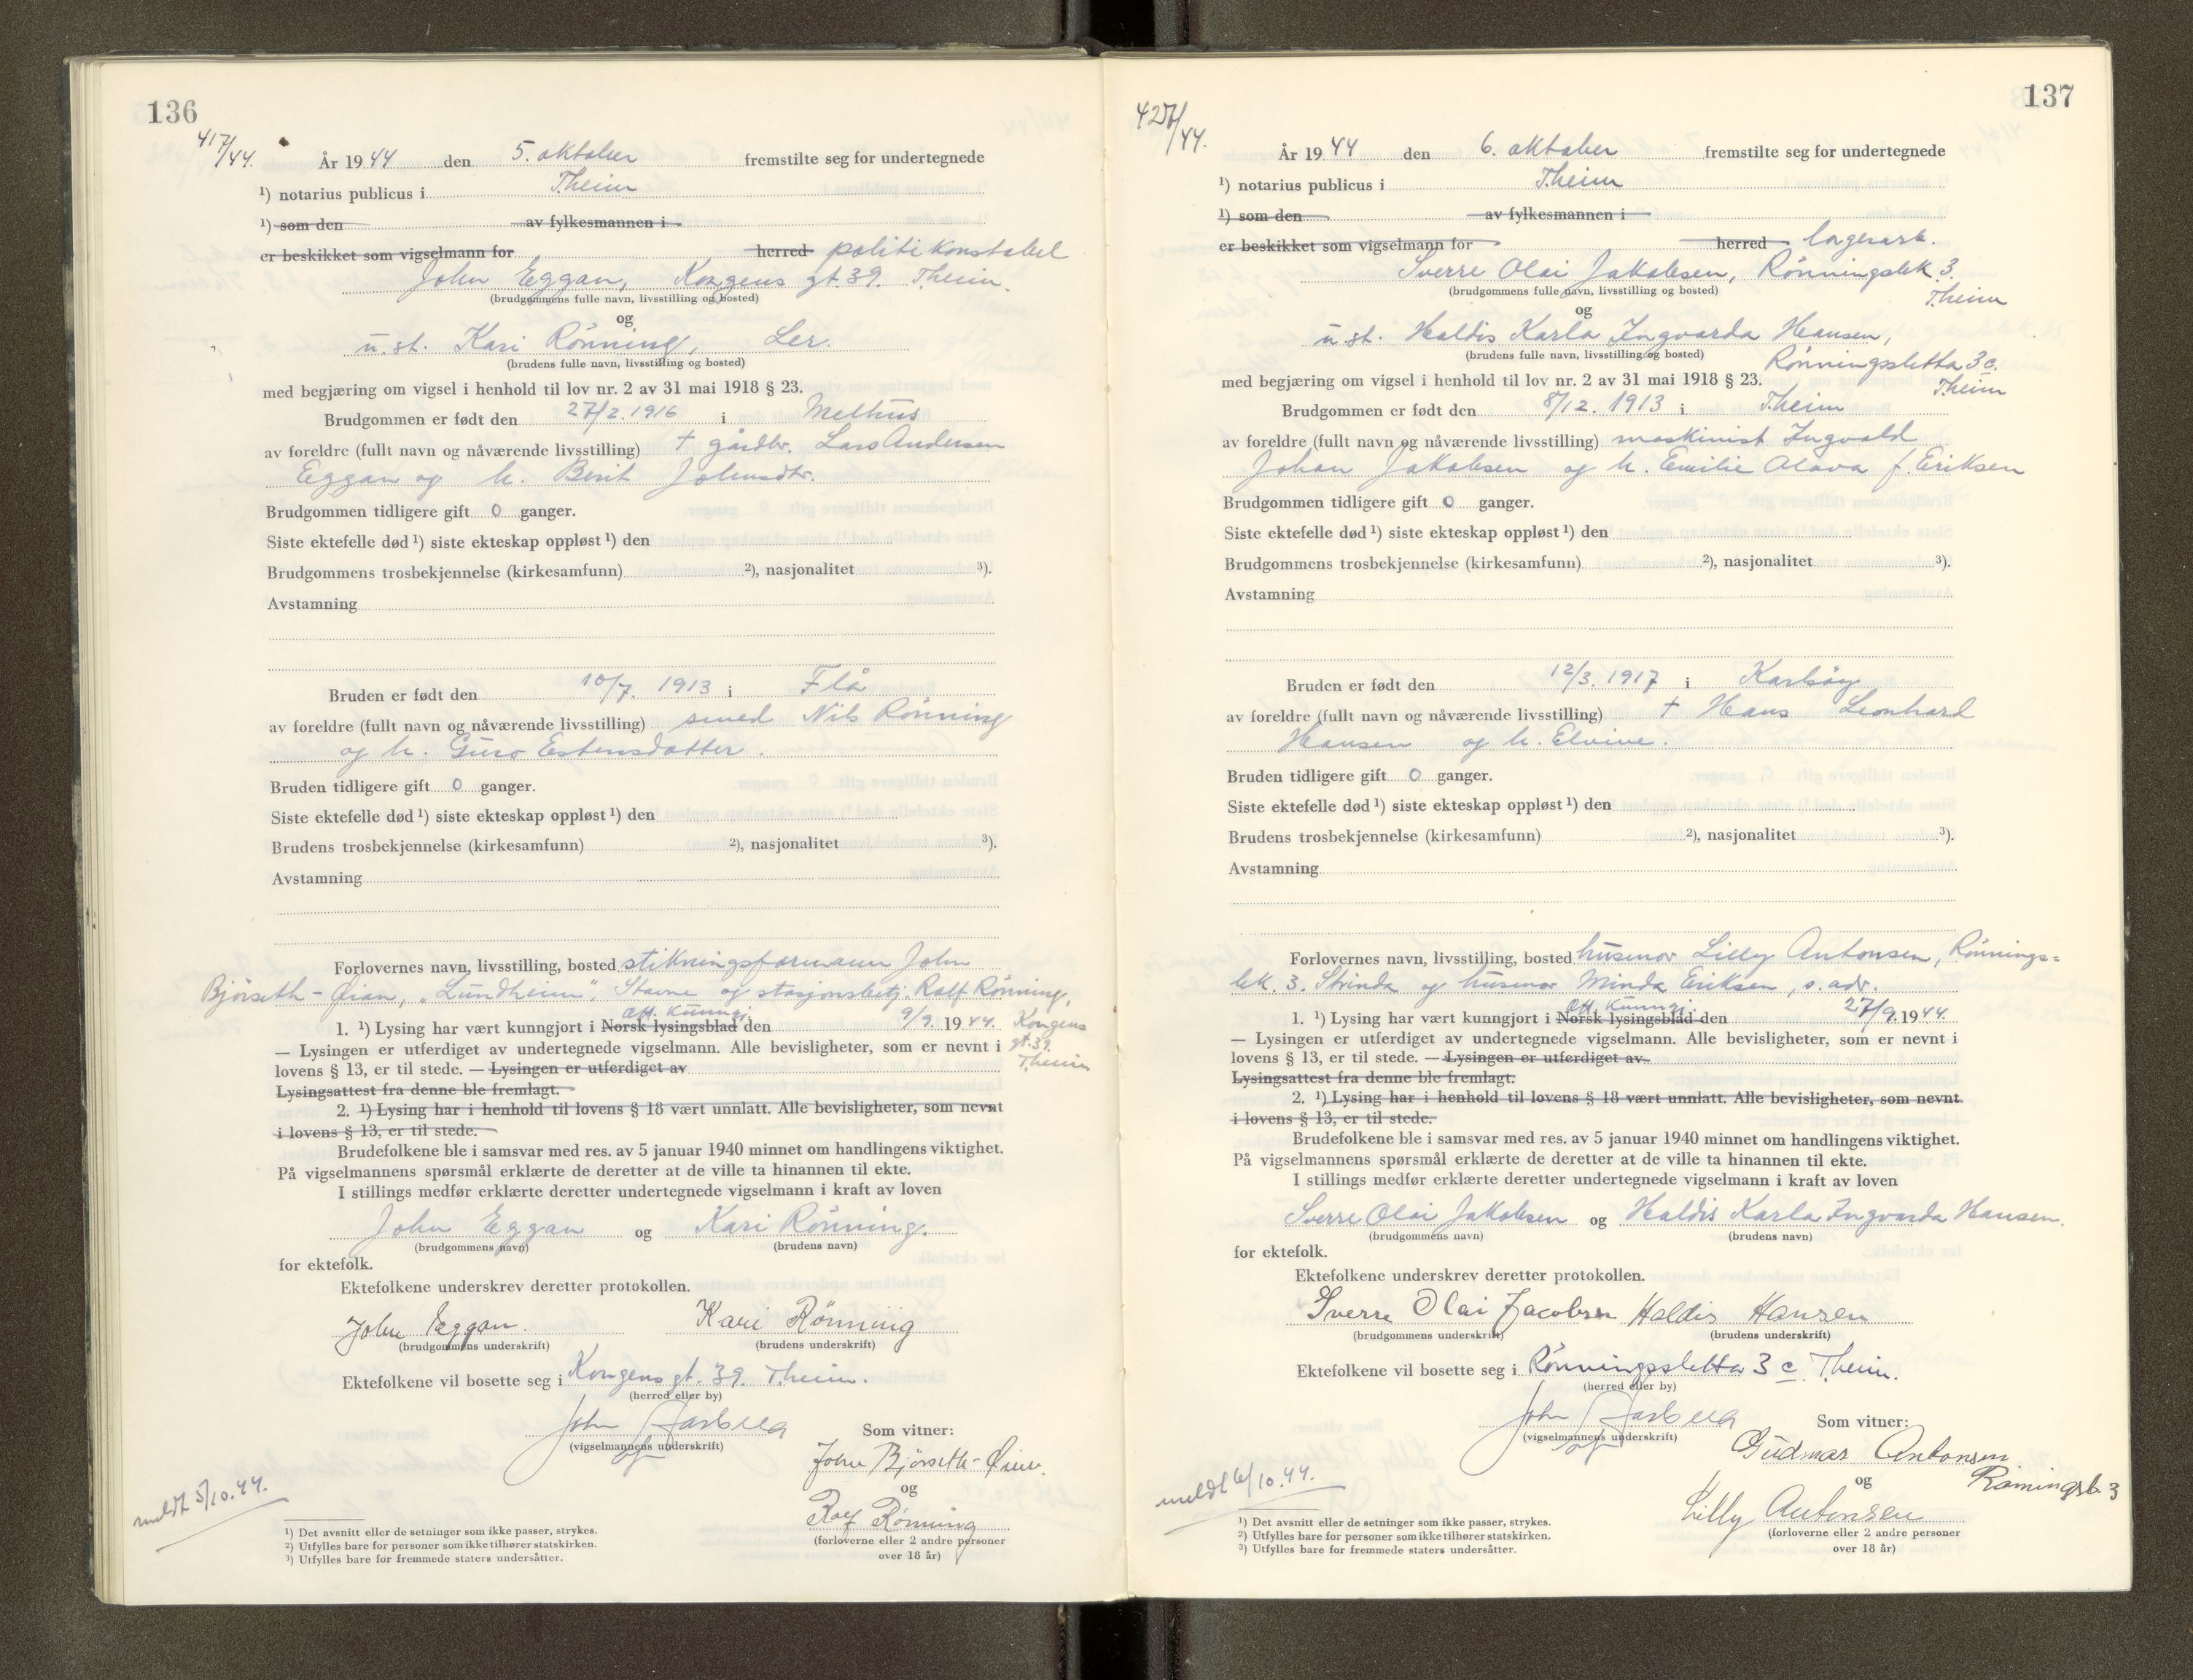 136
417/44.
År 1944 den 5. oktober fremstilte seg for undertegnede
¹) notarius publicus i Theim
¹) som den av fylkesmannen i
er beskikket som vigselmann for herred politikonstabel
John Eggan, Kongens gt. 39. Theim.
(brudgommens fulle navn, livsstilling og bosted)
og
u.st. Kari Rönning, Ler.
(brudens fulle navn, livsstilling og bosted)
med begjæring om vigsel i henhold til lov nr. 2 av 31 mai 1918 § 23.
Brudgommen er født den 27/2. 1916 i Melhus
av foreldre (fullt navn og nåværende livsstilling) † gårdbr. Lars Andersen
Eggan og h. Berit Johnsdtr.
Brudgommen tidligere gift 0 ganger.
Siste ektefelle død ¹) siste ekteskap oppløst ¹) den
Brudgommens trosbekjennelse (kirkesamfunn) ²), nasjonalitet ³).
Avstamning
Bruden er født den 10/7. 1913 i Flå
av foreldre (fullt navn og nåværende livsstilling) smed Nils Rönning
og h. Guro Estensdatter.
Bruden tidligere gift 0 ganger.
Siste ektefelle død ¹) siste ekteskap oppløst ¹) den
Brudens trosbekjennelse (kirkesamfunn) ²), nasjonalitet ³).
Avstamning
Forlovernes navn, livsstilling, bosted stikningsformann John
Björseth-Øian, "Lundheim", Stavne og stasjonsbetj. Ralf Rönning,
off. kunngj.
1. ¹) Lysing har vært kunngjort i Norsk lysingsblad den 9/9. 1944. Kongens
— Lysingen er utferdiget av undertegnede vigselmann. Alle bevisligheter, som er nevnt i gt. 39.
lovens § 13, er til stede. — Lysingen er utferdiget av Theim
Lysingsattest fra denne ble fremlagt.
2. ¹) Lysing har i henhold til lovens § 18 vært unnlatt. Alle bevisligheter, som nevnt
i lovens § 13, er til stede.
Brudefolkene ble i samsvar med res. av 5 januar 1940 minnet om handlingens viktighet.
På vigselmannens spørsmål erklærte de deretter at de ville ta hinannen til ekte.
I stillings medfør erklærte deretter undertegnede vigselmann i kraft av loven
John Eggan og Kari Rönning.
(brudgommens navn) (brudens navn)
for ektefolk.
Ektefolkene underskrev deretter protokollen.
John Eggan. Kari Rönning
(brudgommens underskrift) (brudens underskrift)
Ektefolkene vil bosette seg i Kongens gt. 39. Theim.
(herred eller by)
John
(vigselmannens underskrift) Som vitner:
John Björseth-Øian.
og
Rolf Rönning
(forloverne eller 2 andre personer
over 18 år)
meldt 5/10.44.
¹) Det avsnitt eller de setninger som ikke passer, strykes.
²) Utfylles bare for personer som ikke tilhører statskirken.
³) Utfylles bare for fremmede staters undersåtter.
137
427/44.
År 1944 den 6. oktober fremstilte seg for undertegnede
¹) notarius publicus i Theim
¹) som den av fylkesmannen i
er beskikket som vigselmann for herred lagerarb.
Sverre Olai Jakobsen, Rönningsbk 3.
(brudgommens fulle navn, livsstilling og bosted) Theim
og
u.st. Haldis Karla Ingvarda Hansen,
(brudens fulle navn, livsstilling og bosted) Rönningsletta 3c.
med begjæring om vigsel i henhold til lov nr. 2 av 31 mai 1918 § 23. Theim
Brudgommen er født den 8/12. 1913 i Theim
av foreldre (fullt navn og nåværende livsstilling) maskinist Ingvald
Johan Jakobsen og h. Emilie Olava f. Eriksen
Brudgommen tidligere gift 0 ganger.
Siste ektefelle død ¹) siste ekteskap oppløst ¹) den
Brudgommens trosbekjennelse (kirkesamfunn) ²), nasjonalitet ³).
Avstamning
Bruden er født den 12/3. 1917 i Karlsöy
av foreldre (fullt navn og nåværende livsstilling) † Hans Leonhard
Hansen og h. Elvine.
Bruden tidligere gift 0 ganger.
Siste ektefelle død ¹) siste ekteskap oppløst ¹) den
Brudens trosbekjennelse (kirkesamfunn) ²), nasjonalitet ³).
Avstamning
Forlovernes navn, livsstilling, bosted husmor Lilly Antonsen, Rönnings=
bk. 3. Strinda og husmor Minda Eriksen, s. adr.
off. kunngj.
1. ¹) Lysing har vært kunngjort i Norsk lysingsblad den 27/9. 1944.
— Lysingen er utferdiget av undertegnede vigselmann. Alle bevisligheter, som er nevnt i
lovens § 13, er til stede. — Lysingen er utferdiget av
Lysingsattest fra denne ble fremlagt.
2. ¹) Lysing har i henhold til lovens § 18 vært unnlatt. Alle bevisligheter, som nevnt
i lovens § 13, er til stede.
Brudefolkene ble i samsvar med res. av 5 januar 1940 minnet om handlingens viktighet.
På vigselmannens spørsmål erklærte de deretter at de ville ta hinannen til ekte.
I stillings medfør erklærte deretter undertegnede vigselmann i kraft av loven
Sverre Olai Jakobsen og Haldis Karla Ingvarda Hansen.
(brudgommens navn) (brudens navn)
for ektefolk.
Ektefolkene underskrev deretter protokollen.
Sverre Olai Jacobsen Haldis Hansen
(brudgommens underskrift) (brudens underskrift)
Ektefolkene vil bosette seg i Rönningssletta 3 c. Theim.
(herred eller by)
John
(vigselmannens underskrift) Som vitner:
Gudmar Antonsen
og Rönningsb 3
Lilly Antonsen
(forloverne eller 2 andre personer
over 18 år)
meldt 6/10.44.
¹) Det avsnitt eller de setninger som ikke passer, strykes.
²) Utfylles bare for personer som ikke tilhører statskirken.
³) Utfylles bare for fremmede staters undersåtter.